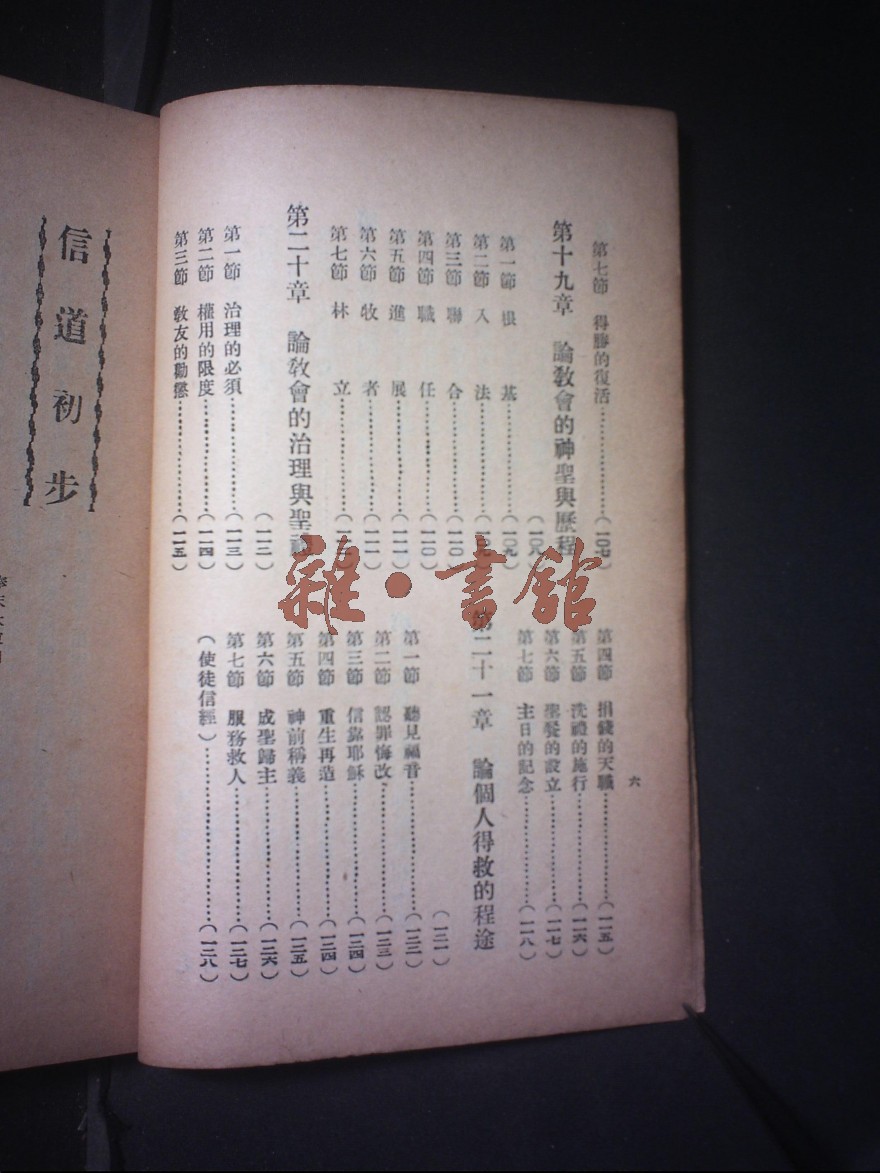 第七節 得勝的復活……………(一〇七)
第十九章 論教會的神聖與歷程
(一〇八)
第一節 根基……………(一〇九)
第二節 入法……………(一〇九)
第三節 聯合……………(一一〇)
第四節 職任……………(一一〇)
第五節 進展……………(一一一)
第六節 牧者……………(一一一)
第七節 林立……………
第二十章 論教會的治理與聖
(一一二)
第一節 治理的必須……………(一一三)
第二節 權用的限度……………(一一四)
第三節 教友的勸懲……………(一一五)
第四節 捐錢的天職……………(一一五)
第五節 洗禮的施行……………(一一六)
第六節 聖餐的設立……………(一一七)
第七節 主日的記念……………(一一八)
第二十一章 論個人得救的程途
(一二一)
第一節 聽見福音……………(一二二)
第二節 認罪悔改……………(一二三)
第三節 信靠耶穌……………(一二四)
第四節 重生再造……………(一二四)
第五節 神前稱義……………(一二五)
第六節 成聖歸主……………(一二六)
第七節 服務救人……………(一二七)
(使徒信經)……………(一二八)
六
信道初步
雜·書館